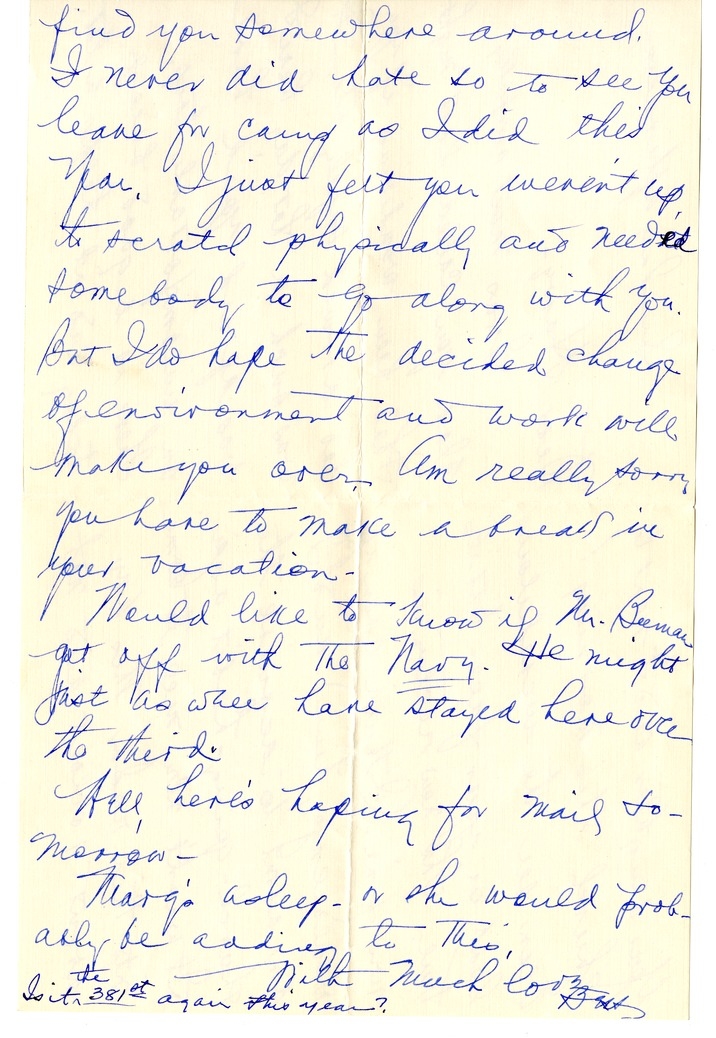 find you somewhere around.
I never did hate so to see you
leave for camp as I did this
year. I just felt you weren't up
to scratch physically and needed
somebody to go along with you.
But I do hope the decided change
of environment and work will
make you over. Am really sorry
you have to make a break in
your vacation -
Would like to know if Mr. Beeman
got off with the Navy. He might
just as well have stayed here over
the third.
Well, here's hoping for mail to-
morrow -
Marg's asleep - or she would prob-
ably be adding to this.
With much love
Is it the 381st again this year?